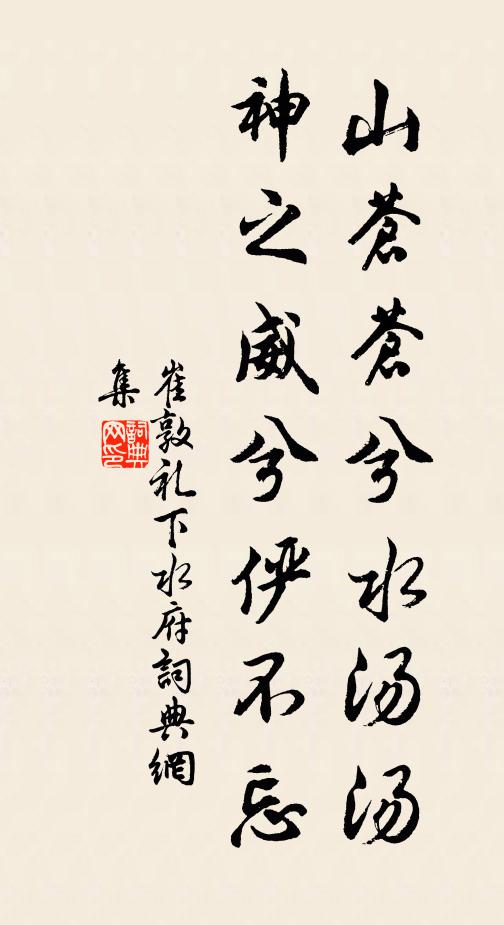 山蒼蒼兮水汤汤
神之威兮俨不忘
崔敦礼下水府詞典網
集
詞典网印